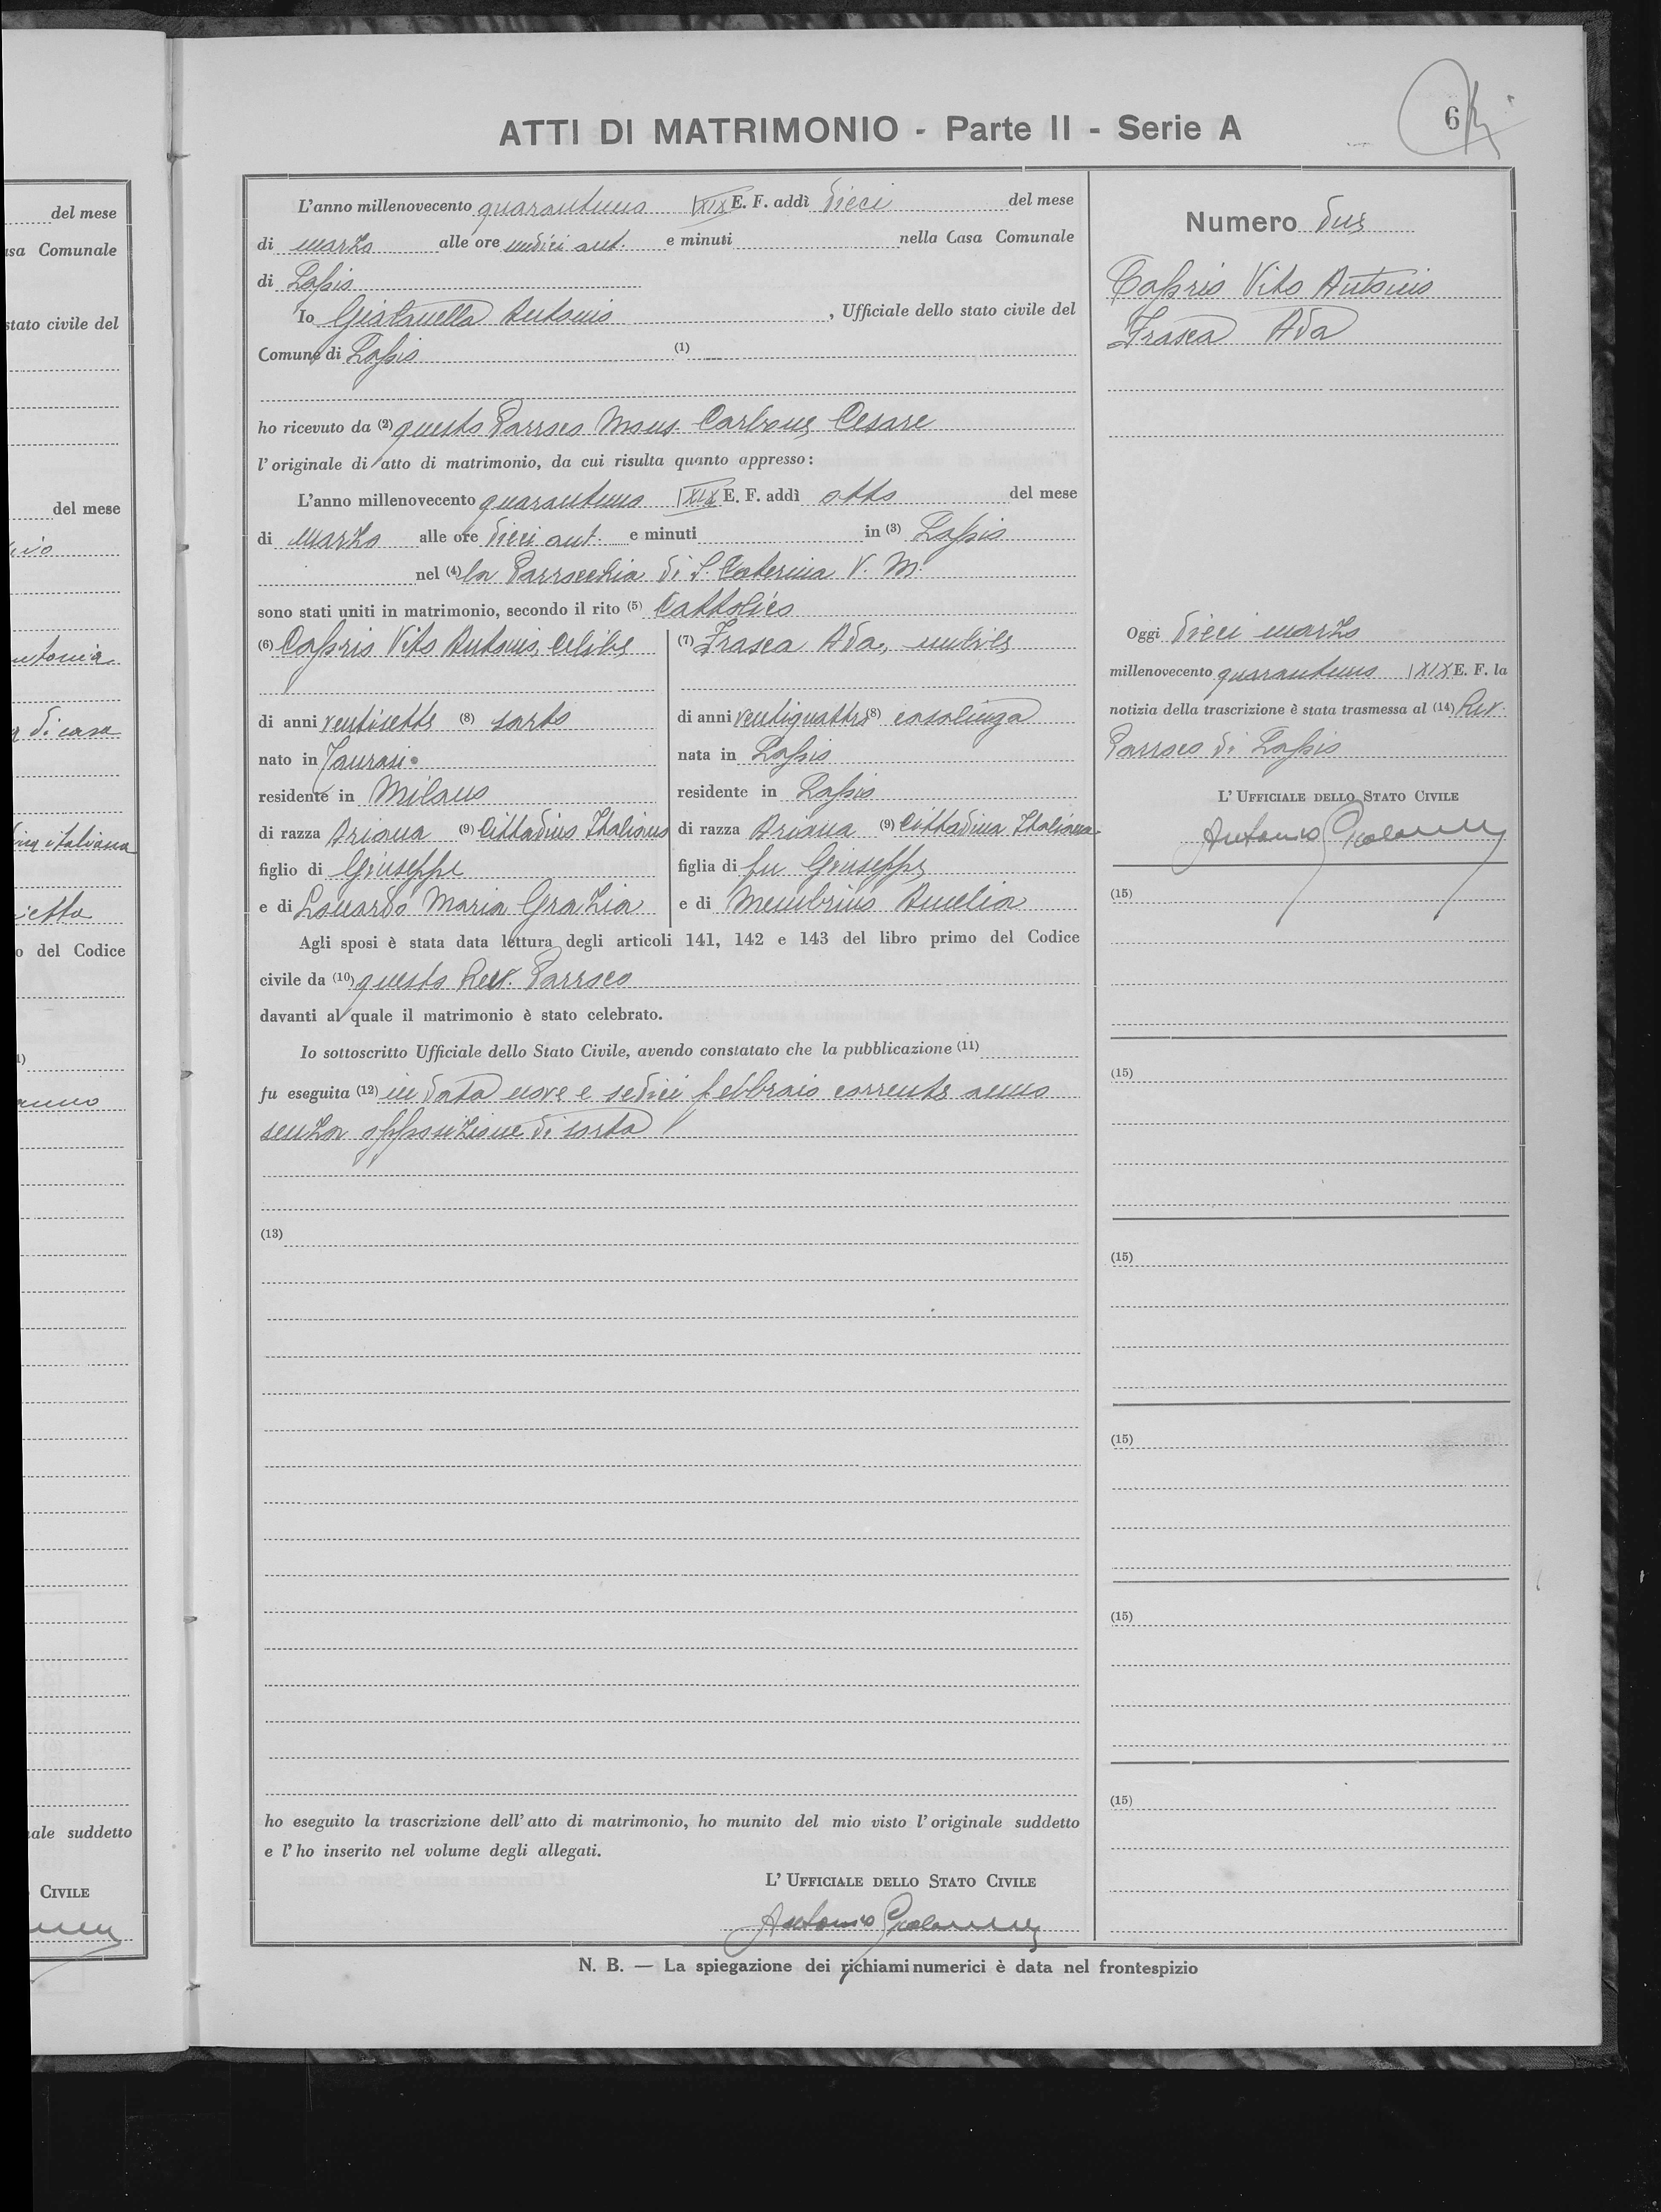 del mese
sa Comunale
stato civile del
del mese
di casa
italiana
o del Codice
anno
ale suddetto
CIVILE
ATTI DI MATRIMONIO - Parte II - Serie A
6
L'anno millenovecento quarantuno XIX E. F. addì dieci del mese
di marzo alle ore undici ant. e minuti nella Casa Comunale
di Lapio
Io Antonio, Ufficiale dello stato civile del
Comune di Lapio (1)
ho ricevuto da (2) questo Parroco Mons. Carbone Cesare
l'originale di atto di matrimonio, da cui risulta quanto appresso:
L'anno millenovecento quarantuno XIX E. F. addì otto del mese
di marzo alle ore dieci ant. e minuti in (3) Lapio
nel (4) la Parrocchia di S. Caterina V. M.
sono stati uniti in matrimonio, secondo il rito (5) Cattolico
(6) Caprio Vito Antonio, celibe
di anni ventisette (8) sarto
nato in Taurasi
residente in Milano
di razza Ariana (9) Cittadino Italiano
figlio di Giuseppe
e di Lonardo Maria Grazia
(7) Frasca Ada, nubile
di anni ventiquattro (8) casalinga
nata in Lapio
residente in Lapio
di razza Ariana (9) Cittadina Italiana
figlia di fu Giuseppe
e di Membrino Amelia
Agli sposi è stata data lettura degli articoli 141, 142 e 143 del libro primo del Codice
civile da (10) questo Rev. Parroco
davanti al quale il matrimonio è stato celebrato.
Io sottoscritto Ufficiale dello Stato Civile, avendo constatato che la pubblicazione (11)
fu eseguita (12) in data nove e sedici febbraio corrente anno
senza opposizione di sorta
(13)
ho eseguito la trascrizione dell'atto di matrimonio, ho munito del mio visto l'originale suddetto
e l'ho inserito nel volume degli allegati.
L'UFFICIALE DELLO STATO CIVILE
Antonio
Numero due
Caprio Vito Antonio
Frasca Ada
Oggi dieci marzo
millenovecento quarantuno XIX E. F. la
notizia della trascrizione è stata trasmessa al (14) Rev.
Parroco di Lapio
L'UFFICIALE DELLO STATO CIVILE
Antonio
(15)
(15)
(15)
(15)
(15)
(15)
N. B. — La spiegazione dei richiami numerici è data nel frontespizio